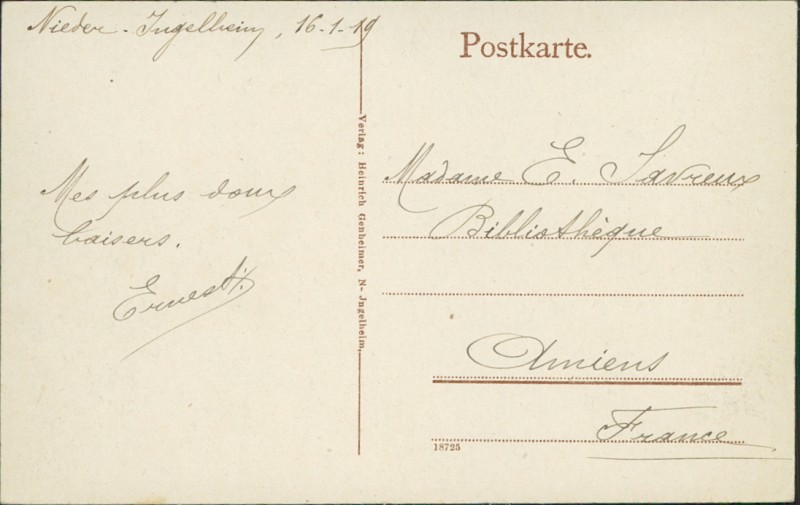 Nieder-Ingelheim, 16-1-19
Mes plus doux
baisers.
Ernest.
Verlag: Heinrich Genheimer, N-Jngelheim.
Postkarte.
Madame E. Savreux
Bibliothèque
Amiens
France
18725